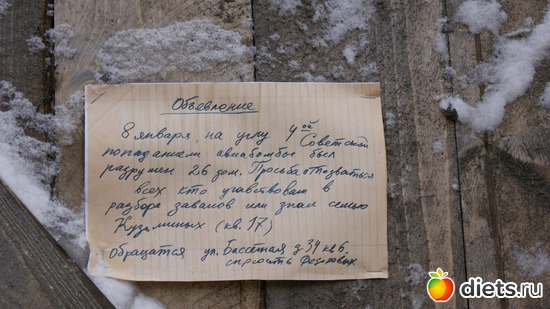 Объевление
8 января, на углу 4ой Советской
попаданием авиабомбы был
разрушен 26 дом. Просьба отпозваться
всех кто учавствовал в
разборе завалов или знал семью
Кузьминых (кв. 17)
Обращатся ул. Бассейная д 34 кв 6.
спросить Федоровых
diets.ru